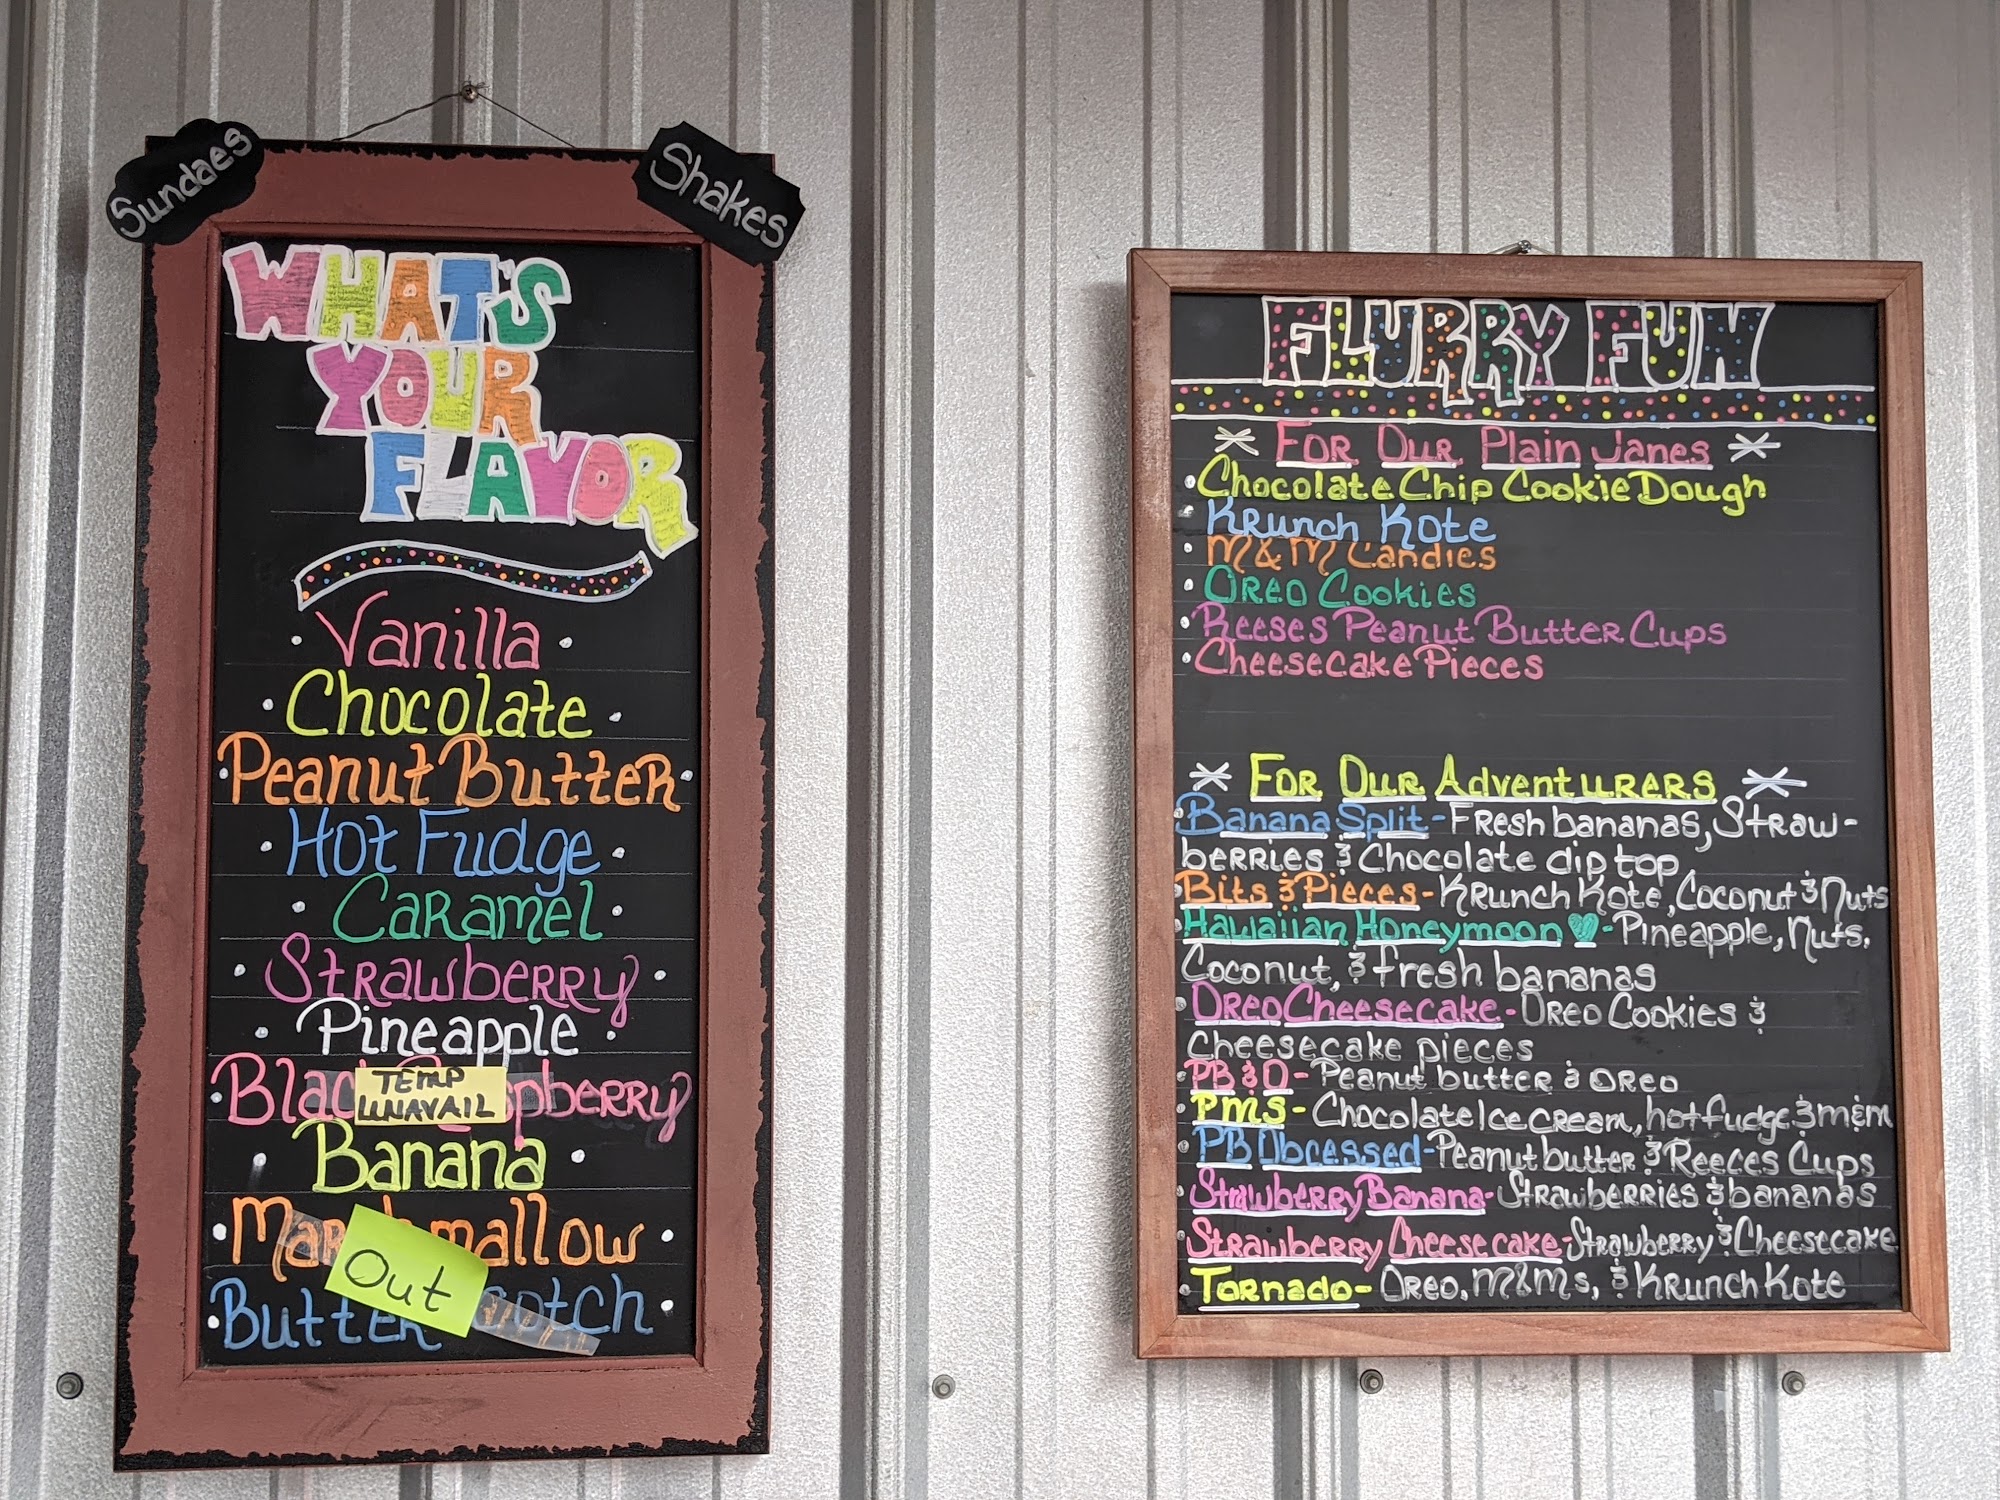 Sundaes
Shakes
WHAT'S
YOUR
FLAVOR
Vanilla
Chocolate
Peanut Butter
Hot Fudge
Caramel
Strawberry
Pineapple
TEMP
UNAVAIL
Banana
Marshmallow
Out
FLURRY FUN
For Our Plain Janes
Chocolate Chip Cookie Dough
Krunch Kote
M & M Candies
Oreo Cookies
Reeses Peanut Butter Cups
Cheesecake Pieces
For Our Adventurers
Banana Split - Fresh bananas, Straw-
berries & Chocolate dip top
Bits & Pieces - Krunch Kote, Coconut & Nuts
Hawaiian Honeymoon - Pineapple, Nuts,
Coconut, & fresh bananas
Oreo Cheesecake - Oreo Cookies &
cheesecake pieces
PB & O - Peanut butter & Oreo
PMS - Chocolate Ice Cream, hot fudge & m&m
PB Obcessed - Peanut butter & Reeces Cups
Strawberry Banana - Strawberries & bananas
Strawberry Cheesecake - Strawberry & Cheesecake
Tornado - Oreo, M&Ms, & Krunch Kote